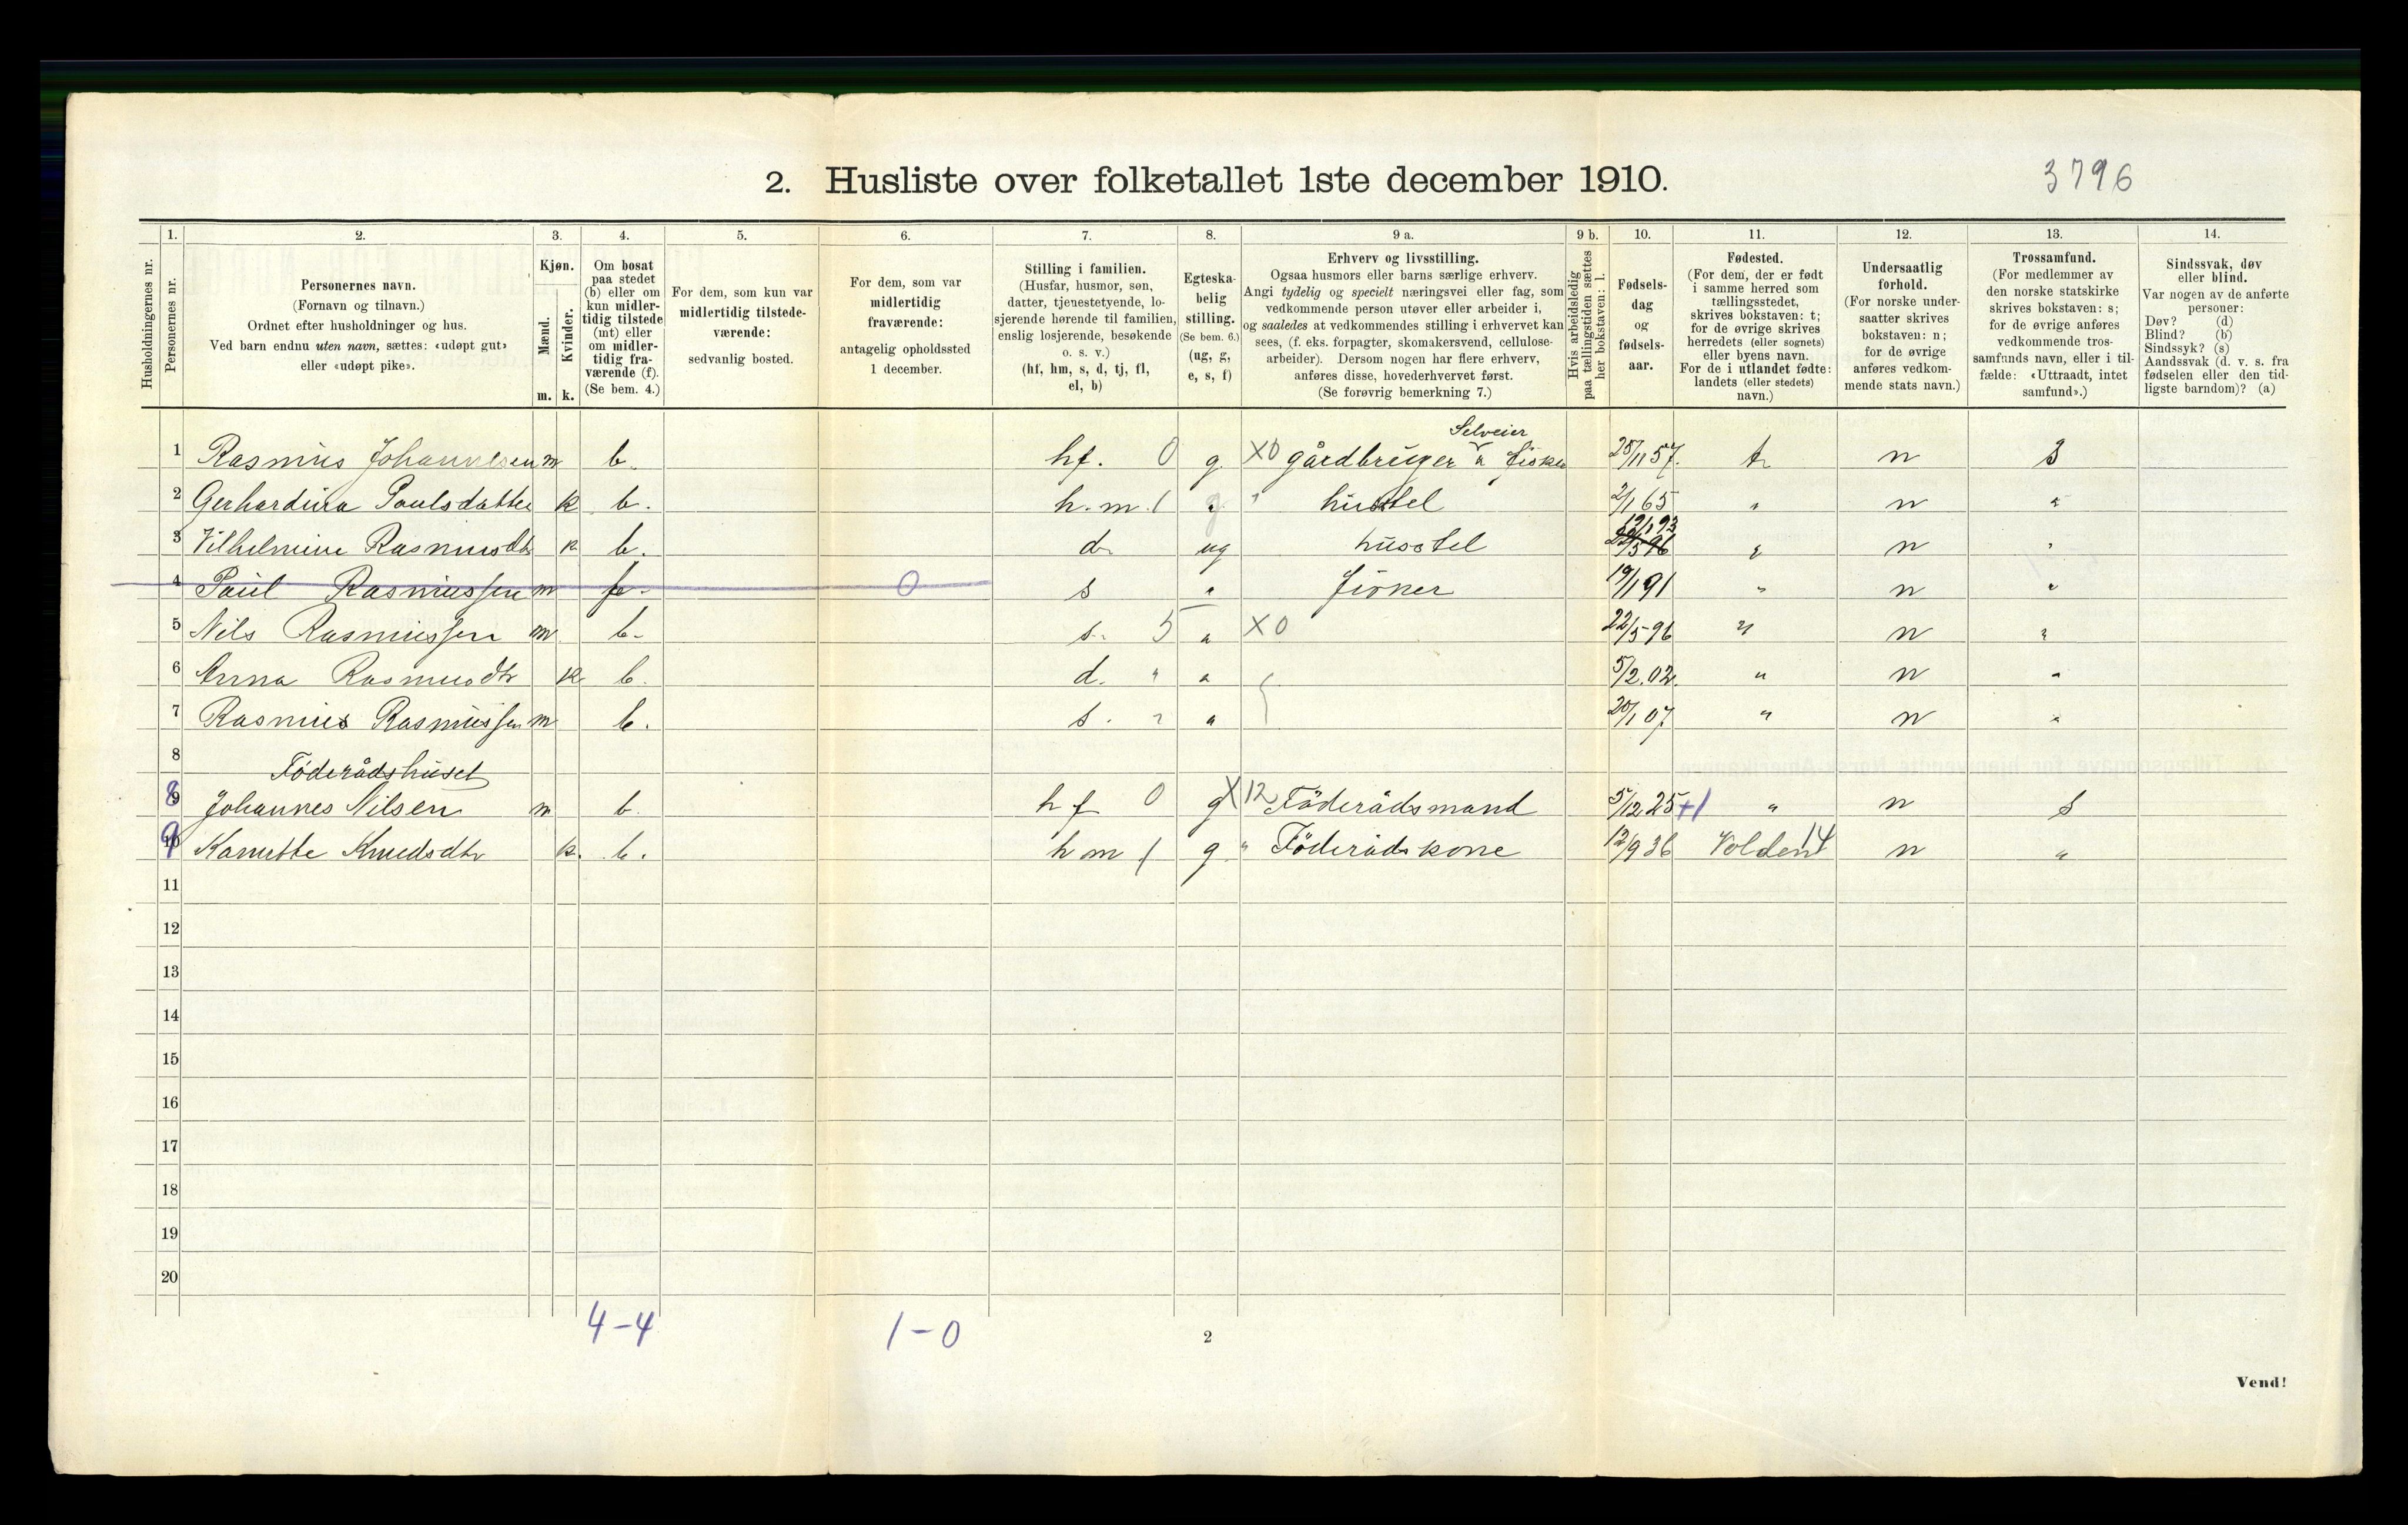 2. Husliste over folketallet 1ste december 1910.
3796
1. 2. 3. 4. 5. 6. 7. 8. 9 a. 9 b. 10. 11. 12. 13. 14.
Husholdningernes nr.
Personernes nr.
Personernes navn.
(Fornavn og tilnavn.)
Ordnet efter husholdninger og hus.
Ved barn endnu uten navn, sættes: «udøpt gut»
eller «udøpt pike».
Kjøn.
Mænd.
Kvinder.
m. k.
Om bosat
paa stedet
(b) eller om
kun midler-
tidig tilstede
(mt) eller
om midler-
tidig fra-
værende (f).
(Se bem. 4.)
For dem, som kun var
midlertidig tilstede-
værende:
sedvanlig bosted.
For dem, som var
midlertidig
fraværende:
antagelig opholdssted
1 december.
Stilling i familien.
(Husfar, husmor, søn,
datter, tjenestetyende, lo-
sjerende hørende til familien,
enslig losjerende, besøkende
o. s. v.)
(hf, hm, s, d, tj, fl,
el, b)
Egteska-
belig
stilling.
(Se bem. 6.)
(ug, g,
e, s, f)
Erhverv og livsstilling.
Ogsaa husmors eller barns særlige erhverv.
Angi tydelig og specielt næringsvei eller fag, som
vedkommende person utøver eller arbeider i,
og saaledes at vedkommendes stilling i erhvervet kan
sees, (f. eks. forpagter, skomakersvend, cellulose-
arbeider). Dersom nogen har flere erhverv,
anføres disse, hovederhvervet først.
(Se forøvrig bemerkning 7.)
Hvis arbeidsledig
paa tællingstiden sættes
her bokstaven: l.
Fødsels-
dag
og
fødsels-
aar.
Fødested.
(For dem, der er født
i samme herred som
tællingsstedet,
skrives bokstaven: t;
for de øvrige skrives
herredets (eller sognets)
eller byens navn.
For de i utlandet fødte:
landets (eller stedets)
navn.)
Undersaatlig
forhold.
(For norske under-
saatter skrives
bokstaven: n;
for de øvrige
anføres vedkom-
mende stats navn.)
Trossamfund.
(For medlemmer av
den norske statskirke
skrives bokstaven: s;
for de øvrige anføres
vedkommende tros-
samfunds navn, eller i til-
fælde: «Uttraadt, intet
samfund».)
Sindssvak, døv
eller blind.
Var nogen av de anførte
personer:
Døv? (d)
Blind? (b)
Sindssyk? (s)
Aandssvak (d. v. s. fra
fødselen eller den tid-
ligste barndom)? (a)
Selveier
1 Rasmus Johannesen m b. hf. 0 g. X0 gårdbruger & fisker 28/11 57. t. n S
2 Gerhardina Paulsdatter k b. h.m. 1 g " husstel 2/1 65 " n "
12/1 93
3 Vilhelmine Rasmusdtr k b. d. ug husstel 22/5 96 " n "
4 Paul Rasmussen m f. 0 s " fisker 19/1 91 " n "
5 Nils Rasmussen m b. s. 5 " X0 22/5 96 " n "
6 Anna Rasmusdtr k b. d. " " 5/2.02. " n "
7 Rasmus Rasmussen m b. s. " " 20/1 07 " n "
8 Föderådshuset
9 8 Johannes Nilsen m b. hf 0 g X12 Föderådsmand 5/12 25 +1 " n S
10 9 Kanutte Knudsdtr k. b. hm 1 g. " Föderådskone 12/9 36 Volden 14 n "
11
12
13
14
15
16
17
18
19
20
4-4 1-0
2
Vend!